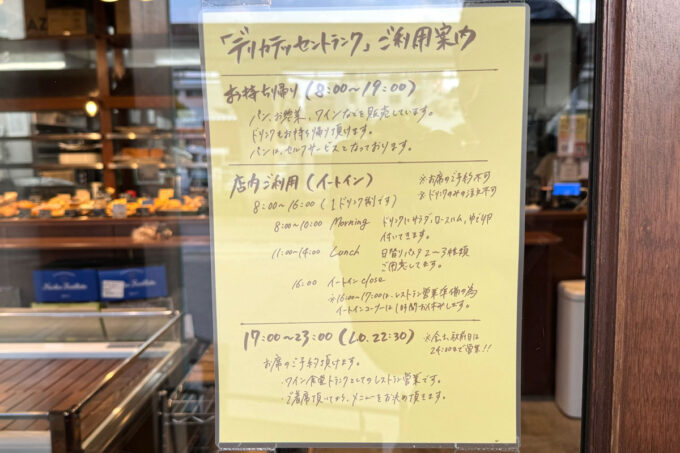 「デリカテッセントランク」ご利用案内
お持ち帰り (8:00〜19:00)
パン、お惣菜、ワインなどを販売しています。
ドリンクもお持ち帰り頂けます。
パンは、セルフサービスとなっております。
店内ご利用 (イートイン)
※お席のご予約不可
※ドリンクのみの注文不可
8:00〜16:00 (1ドリンク制です)
8:00〜10:00 Morning ドリンクにサラダ、ロースハム、ゆで卵
付いてきます。
11:00〜14:00 Lunch 日替りパスタ2〜3種類
ご用意してます。
16:00 イートイン close
※16:00〜17:00は、レストラン営業準備の為
イートインコーナーは1時間お休みします。
17:00〜23:00 (L.O.22:30)
※金、土、祝前日は
24:00まで営業!!
お席のご予約頂けます。
・ワイン食堂トランクとしてのレストラン営業です。
・ご着席頂いてから、メニューをお決め頂きます。